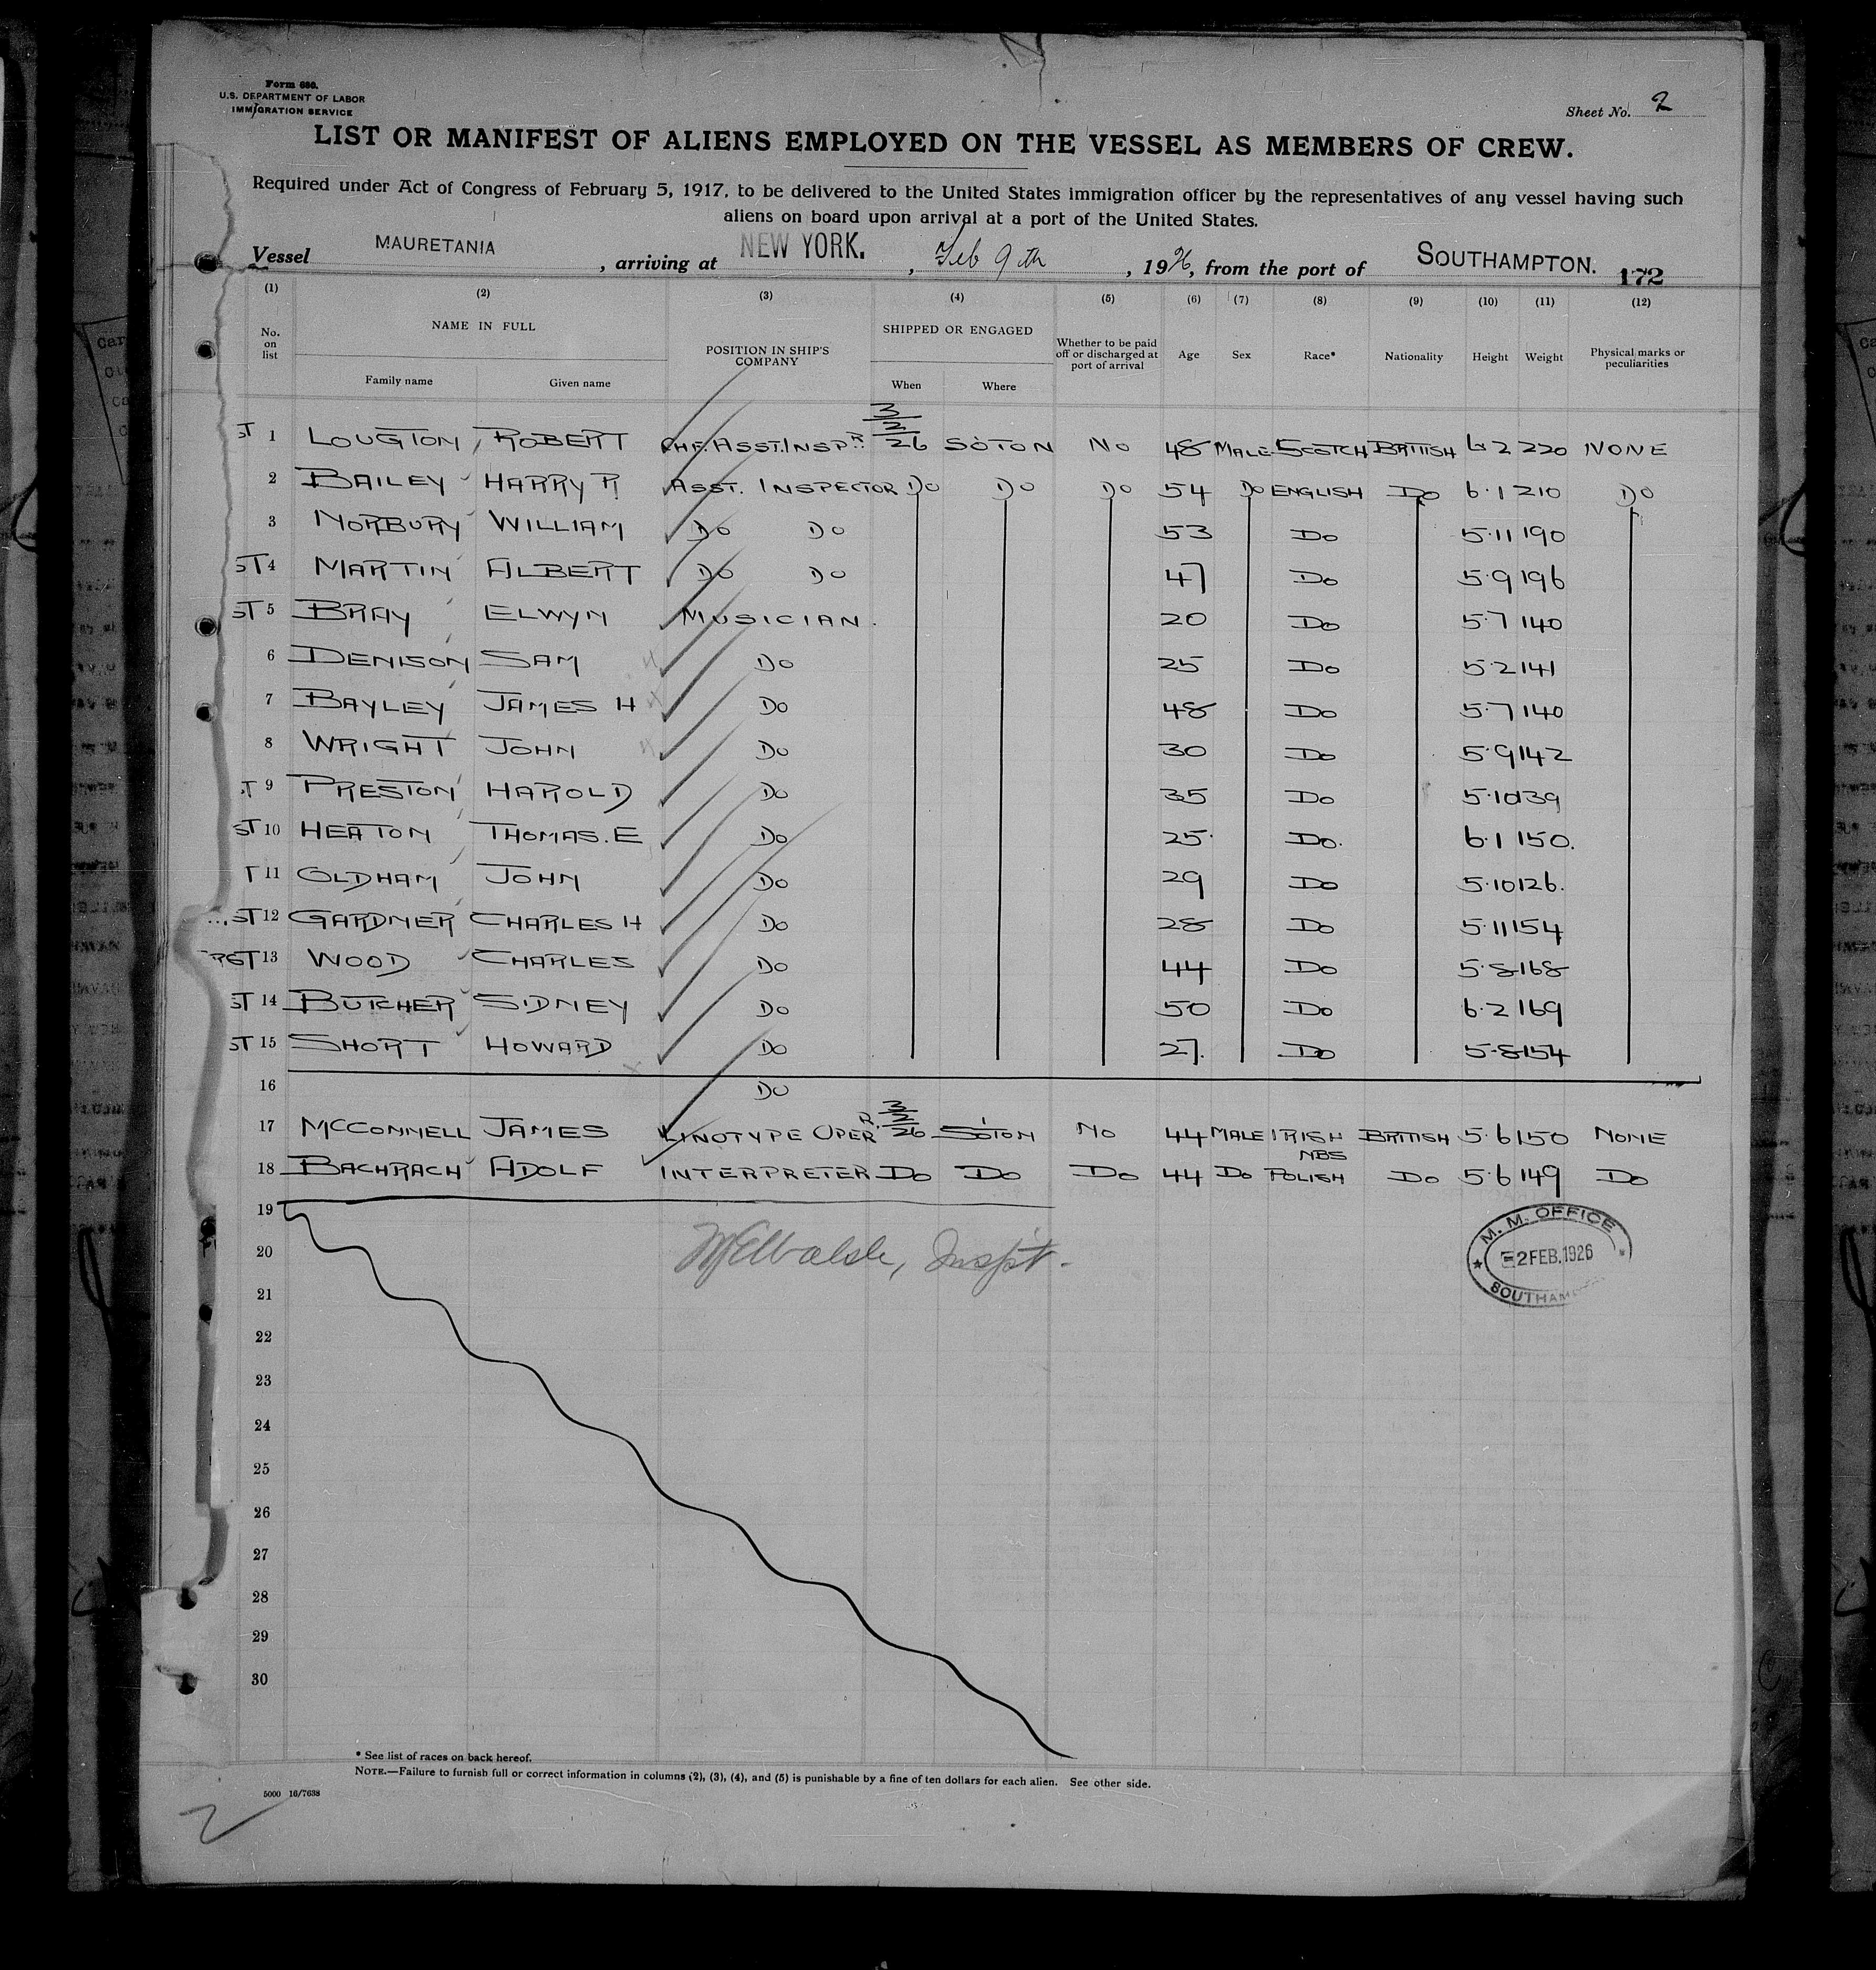 Form 680.
U.S. DEPARTMENT OF LABOR
IMMIGRATION SERVICE
Sheet No. 2
LIST OR MANIFEST OF ALIENS EMPLOYED ON THE VESSEL AS MEMBERS OF CREW.
Required under Act of Congress of February 5, 1917, to be delivered to the United States immigration officer by the representatives of any vessel having such
aliens on board upon arrival at a port of the United States.
Vessel MAURETANIA, arriving at NEW YORK., Feb 9th, 1926, from the port of SOUTHAMPTON. 172
(1) (2) (3) (4) (5) (6) (7) (8) (9) (10) (11) (12)
No. on list NAME IN FULL Family name Given name POSITION IN SHIP'S COMPANY SHIPPED OR ENGAGED When Where Whether to be paid off or discharged at port of arrival Age Sex Race* Nationality Height Weight Physical marks or peculiarities
ST 1 LOUGTON, ROBERT CHF. ASST. INSPR 3/2/26 SOTON NO 48 MALE SCOTCH BRITISH 6 2 220 NONE
2 BAILEY HARRY R ASST. INSPECTOR DO DO DO 54 DO ENGLISH DO 6.1 210 DO
3 NORBURY WILLIAM DO DO 53 DO 5.11 190
ST 4 MARTIN ALBERT DO DO 47 DO 5.9 196
ST 5 BRAY ELWYN MUSICIAN. 20 DO 5.7 140
6 DENISON SAM DO 25 DO 5.2 141
7 BAYLEY JAMES H DO 48 DO 5.7 140
8 WRIGHT JOHN DO 30 DO 5.9 142
T 9 PRESTON HAROLD DO 35 DO 5.10 139
ST 10 HEATON THOMAS. E DO 25. DO. 6.1 150.
T 11 OLDHAM JOHN DO 29 DO 5.10 126.
ST 12 GARDNER CHARLES H DO 28 DO 5.11 154
ST 13 WOOD CHARLES DO 44 DO 5.8 168
ST 14 BUTCHER SIDNEY DO 50 DO 6.2 169
ST 15 SHORT HOWARD DO 27. DO 5.8 154
16 DO
17 MCCONNELL JAMES LINOTYPE OPER R. 3/2/26 SOTON NO 44 MALE IRISH BRITISH 5.6 150 NONE
NBS
18 BACHRACH ADOLF INTERPRETER DO DO DO 44 DO POLISH DO 5.6 149 DO
19
20 Inspt.
M. M. OFFICE
2 FEB. 1926
SOUTHAM
21
22
23
24
25
26
27
28
29
30
* See list of races on back hereof.
NOTE.—Failure to furnish full or correct information in columns (2), (3), (4), and (5) is punishable by a fine of ten dollars for each alien. See other side.
5000 16/7638
2